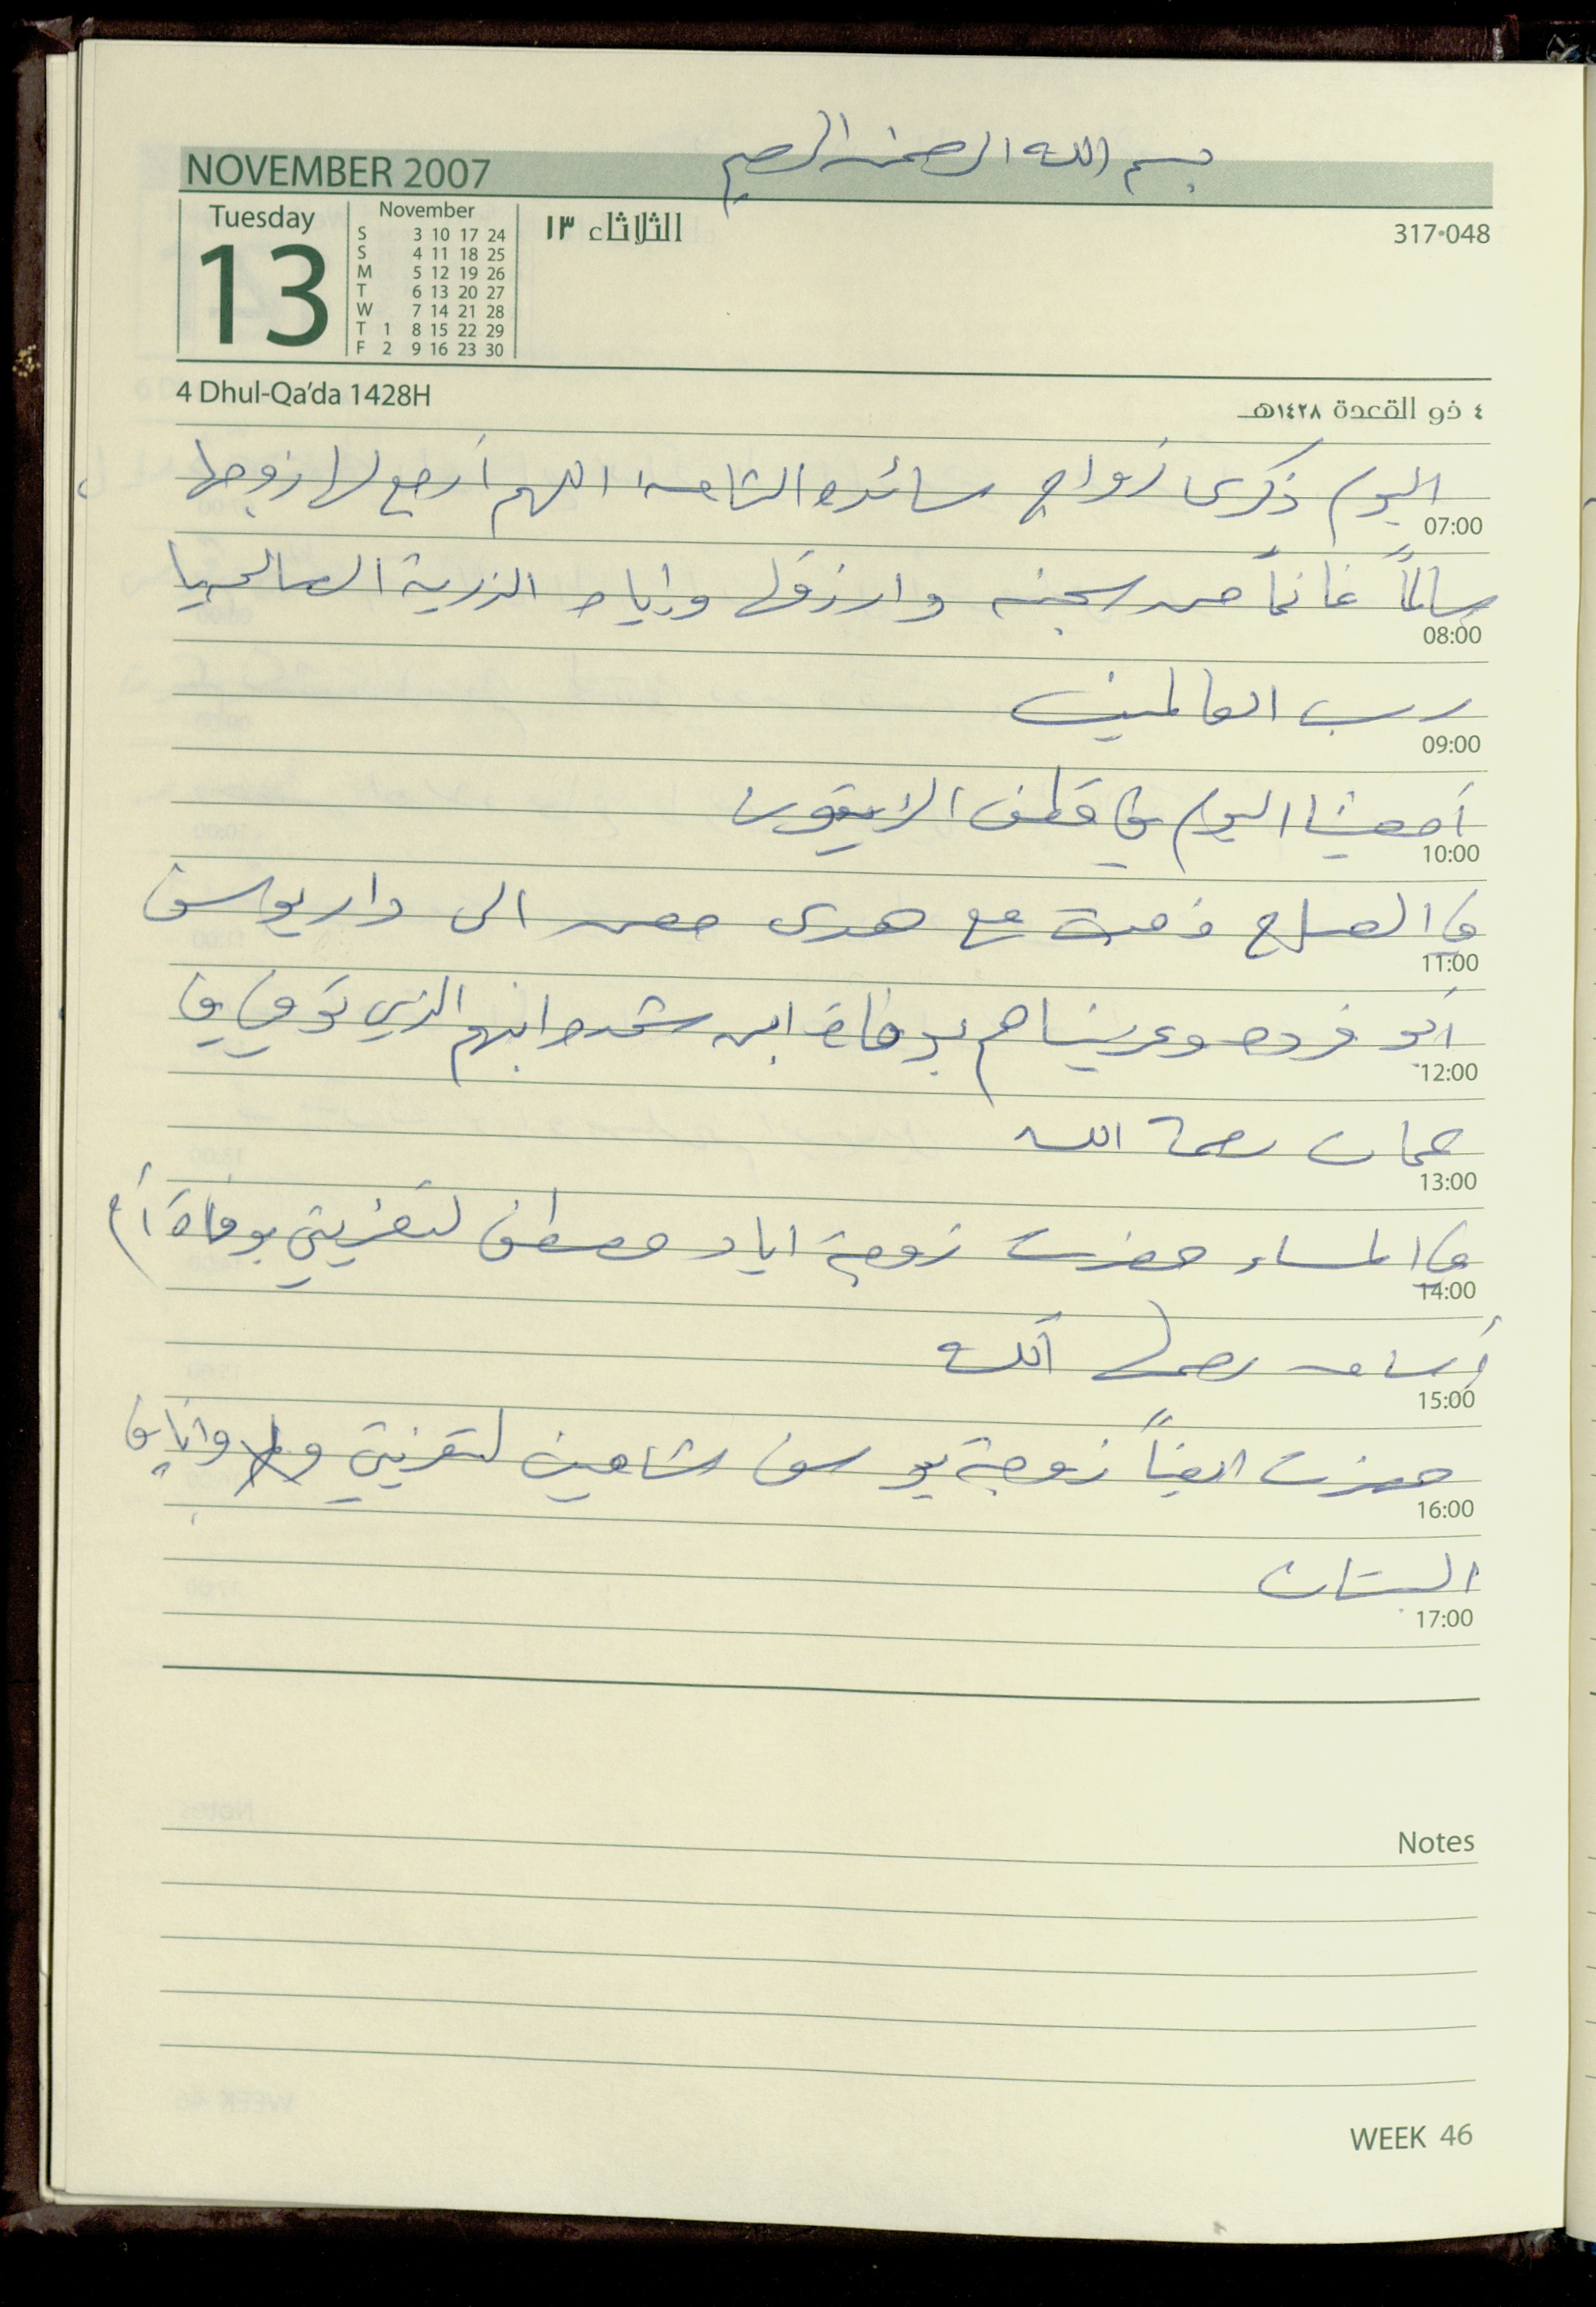 بسم الله الرحمن الرحيم
NOVEMBER 2007
Tuesday
13
November
S 3 10 17 24
S 4 11 18 25
M 5 12 19 26
T 6 13 20 27
W 7 14 21 28
T 1 8 15 22 29
F 2 9 16 23 30
الثلاثاء ١٣
317•048
4 Dhul-Qa'da 1428H
٤ ذو القعدة ١٤٢٨هـ
اليوم ذكرى زواج سائده الثامنة اللهم أرجع لها زوجها
07:00
سالماً غانماً من سجنه وارزقها وإياه الذرية الصالحة يا
08:00
رب العالمين
09:00
أمضينا اليوم في قطف الزيتون
10:00
في الصباح ذهبت مع هدى حسن الى دار يوسف
11:00
أبو فروه وعزيناهم بوفاة ابن ابنهم الذي توفي في
12:00
عمان رحمه الله
13:00
في المساء حضرت زوجة اياد مصطفى لتعزيتي بوفاة أم
14:00
أسامه رحمها الله
15:00
حضرت ايضاً زوجة يوسف شاهين لتعزيتي وانا في
16:00
البستان
17:00
Notes
WEEK 46